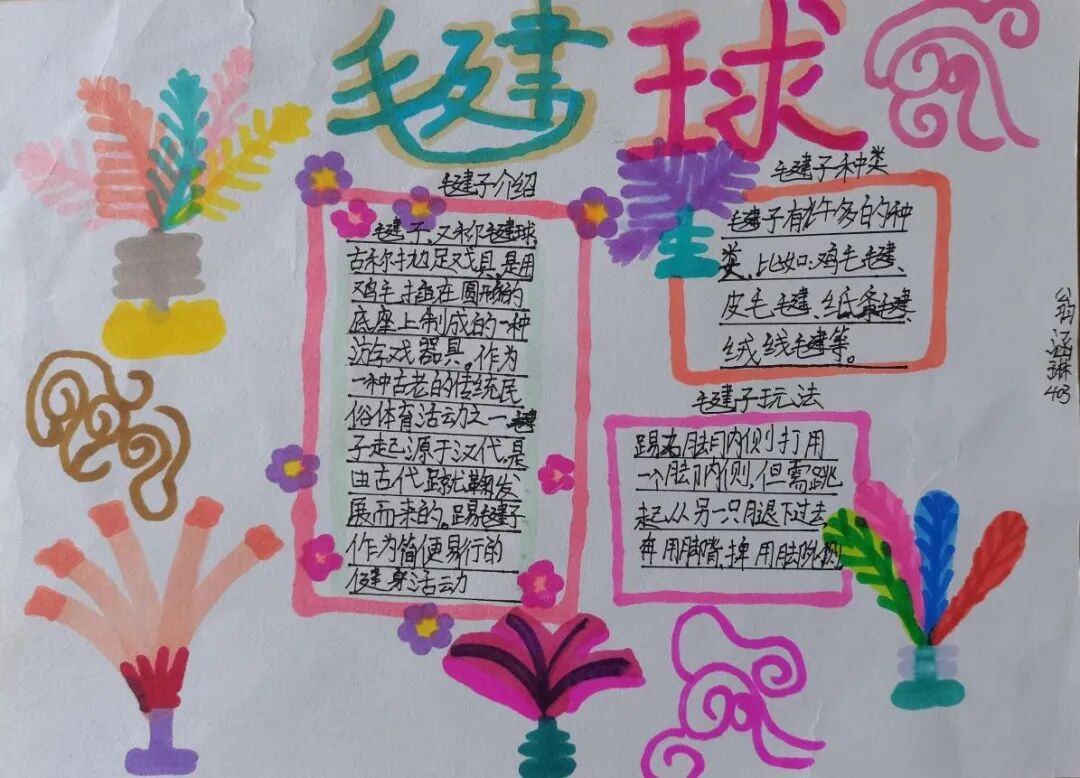 毛毽球
毽子介绍
毽子,又称毽球,
古称抛足戏具,是用
鸡毛插在圆形的
底座上制成的一种
游戏器具。作为
一种古老的传统民
俗体育活动之一,毽
子起源于汉代,是
由古代蹴鞠发
展而来的。踢毽子
作为简便易行的
健身活动
毽子种类
毽子有许多的种
类,比如:鸡毛毽、
皮毛毽、纸条毽、
绒线毽等。
毽子玩法
内侧打用
内侧,但需跳
起,从另一只腿下过去
用脚背
翁涵琳
403